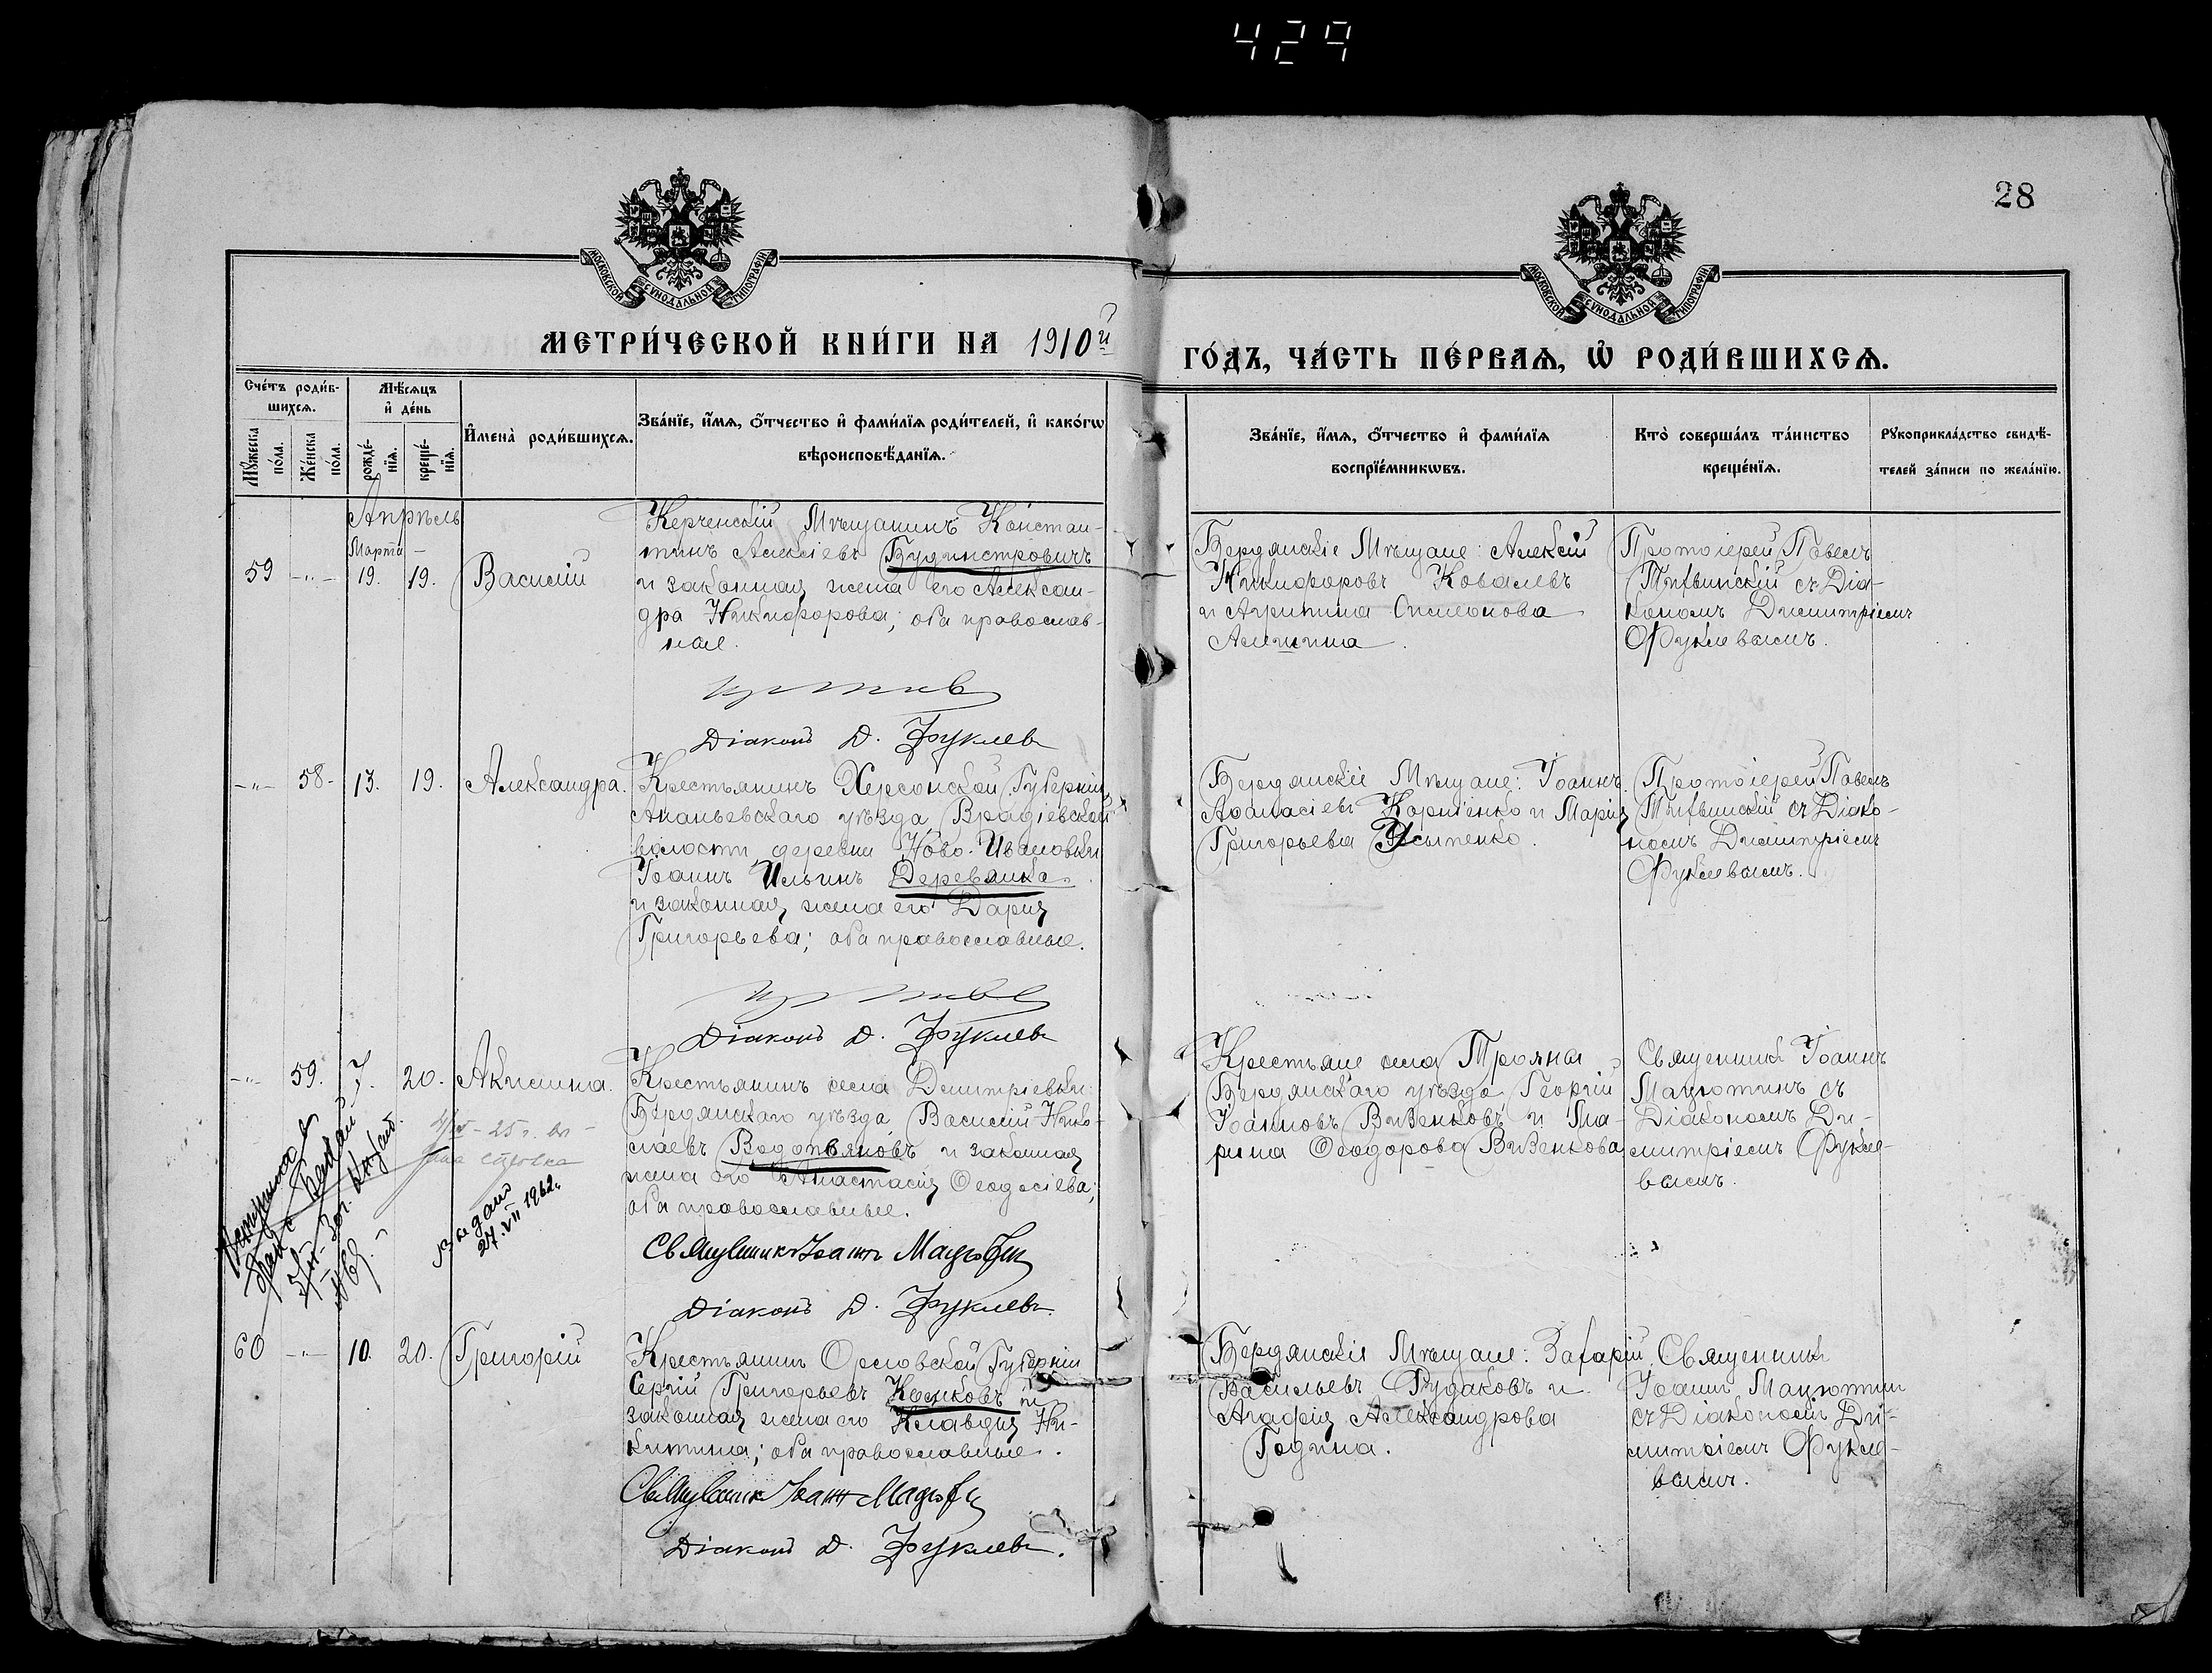 429
28
МОСКОВСКОЙ СѴНОДАЛЬНОЙ ТИПОГРАФІИ
МОСКОВСКОЙ СѴНОДАЛЬНОЙ ТИПОГРАФІИ
МЕТРИ́ЧЕСКОЙ КНИ́ГИ НА 1910й
ГО́ДЪ, ЧА́СТЬ ПЕ́РВАѦ, Ѡ҆ РОДИ́ВШИХСѦ.
Сче́тъ роди́в-
шихсѧ.
Мꙋ́жеска по́ла.
Же́нска по́ла.
Мѣ́сѧцъ
и҆ де́нь
рожде́-
нїѧ.
креще́-
нїѧ.
И҆мена̀ роди́вшихсѧ.
Зва́нїе, и҆́мѧ, ѻ҆́тчество и҆ фами́лїѧ роди́телей, и҆ како́гѡ
вѣроисповѣ́данїѧ.
Зва́нїе, и҆́мѧ, ѻ҆́тчество и҆ фами́лїѧ
воспрїе́мникѡвъ.
Кто̀ соверша́лъ та́инство
креще́нїѧ.
Рꙋкоприкла́дство свидѣ́-
телей за́писи по жела́нїю.
Апрѣль
Марта –
59 –"– 19. 19. Василій
Керченскій Мѣщанинъ Констан-
тинъ Алексіевъ Будинстровичъ
и законная жена его Алексан-
дра Никифорова; оба православ-
ные.
Діаконъ Д. Фуклевъ
Бердянскіе Мѣщане: Алексій
Никифоровъ Ковалевъ
и Агрипина Симеонова
Протоіерей Павелъ
Тихвинскій съ Діа-
кономъ Димитріемъ
Фуклевымъ.
–"– 58 – 13. 19. Александра.
Крестьянинъ Херсонской Губерніи
Ананьевскаго уѣзда Врадіевской
волости деревни Ново-Ивановки
Іоаннъ Ильинъ Деревянко
и законная жена его Дарія
Григорьева; оба православные.
Діаконъ Д. Фуклевъ
Бердянскіе Мѣщане: Іоаннъ
Афанасіевъ Корніенко и Марія
Григорьева Усытенко.
Протоіерей Павелъ
Тихвинскій съ Діако-
номъ Димитріемъ
Фуклевымъ.
–"– 59. 7. 20. Акилина.
Крестьянинъ села Димитріевки
Бердянскаго уѣзда Василій Нико-
лаевъ Водопьяновъ и законная
жена его Анастасія Ѳеодосіева;
оба православные.
Священникъ Іоаннъ Мацютин
Діаконъ Д. Фуклевъ.
Крестьяне села Трояны
Бердянскаго уѣзда Георгій
Іоанновъ Визенковъ и Ма-
рина Ѳеодорова Визенкова
Священникъ Іоаннъ
Мацютинъ съ
Діакономъ Ди-
митріемъ Фукле-
вымъ.
выдано
27.VII 1962г.
60 –"– 10. 20. Григорій
Крестьянинъ Орловской Губерніи
Сергій Григорьевъ Носиковъ и
законная жена его Клавдія Ни-
китина; оба православные.
Священникъ Іоаннъ Мацютин
Діаконъ Д. Фуклевъ.
Бердянскіе Мѣщане: Захарій
Васильевъ Рудаковъ и
Агафія Александрова
Година.
Священникъ
Іоаннъ Мацютинъ
съ Діакономъ Ди-
митріемъ Фукле-
вымъ.